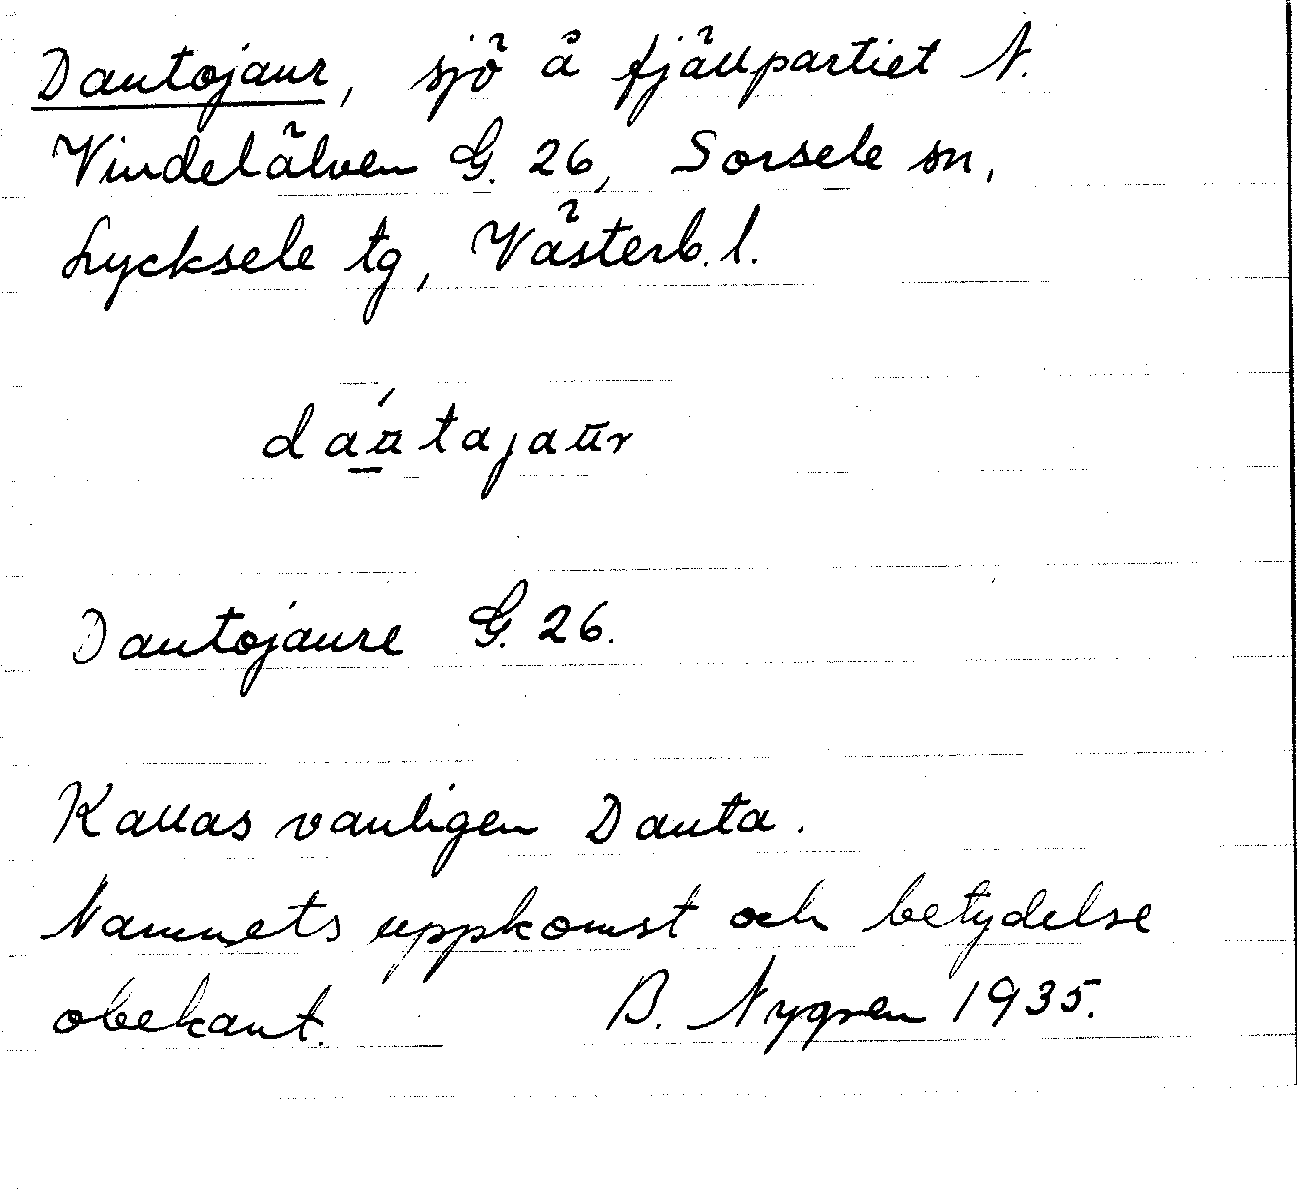 Dautojaur, sjö å fjällpartiet N.
Vindelälven G. 26, Sorsele sn,
Lycksele tg, Västerb. l.
dáu̱tajau̅r
Dautojaure G. 26.
Kallas vanligen Dauta.
Namnets uppkomst och betydelse
obekant. B. Nygren 1935.